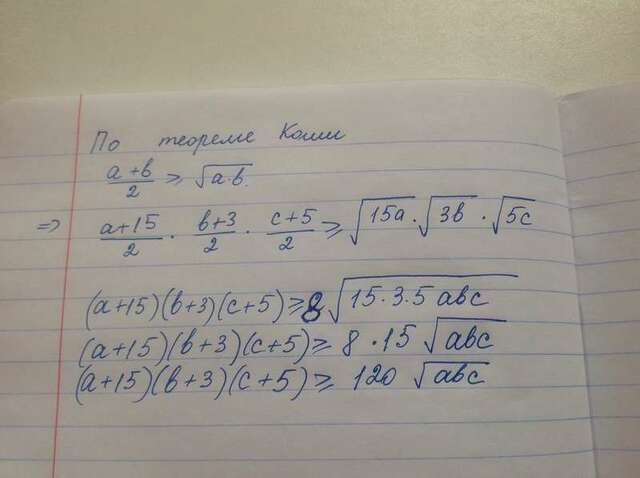 По теореме Коши
a+b/2 ≥ √a·b.
⇒ a+15/2 · b+3/2 · c+5/2 ≥ √15a · √3b · √5c
(a+15)(b+3)(c+5) ≥ 8√15·3·5 abc
(a+15)(b+3)(c+5) ≥ 8·15 √abc
(a+15)(b+3)(c+5) ≥ 120 √abc